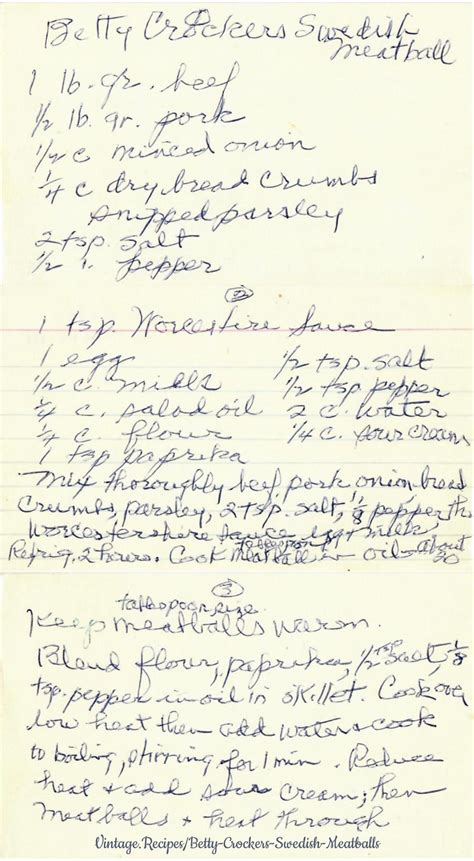 Betty Crockers Swedish
Meatball
1 lb. gr. beef
1/2 lb. gr. pork
1/2 c minced onion
1/4 c dry bread crumbs
snipped parsley
2 tsp. salt
1/2 pepper
2
1 tsp. Worcestire Sauce
1 egg
1/2 c. milk
1/4 c. salad oil
1/4 c. flour
1 tsp paprika
1/2 tsp. salt
1/2 tsp pepper
2 c. water
1/4 c. sour cream
Mix thoroughly beef, pork, onion, bread
crumbs, parsley, 2 tsp. salt, 1/8 pepper,
Worcestershire sauce egg + milk,
Refrig, 2 hours. Cook meatball in oil - about
tablespoon
20
3
tablespoon size
Keep meatballs warm.
Blend flour, paprika, 1/2 tsp salt, 1/8
tsp. pepper in oil in skillet. Cook over
low heat then add water & cook
to boiling, stirring, for 1 min. Reduce
heat & add sour cream; then
meatballs & heat through
Vintage.Recipes/Betty-Crockers-Swedish-Meatballs